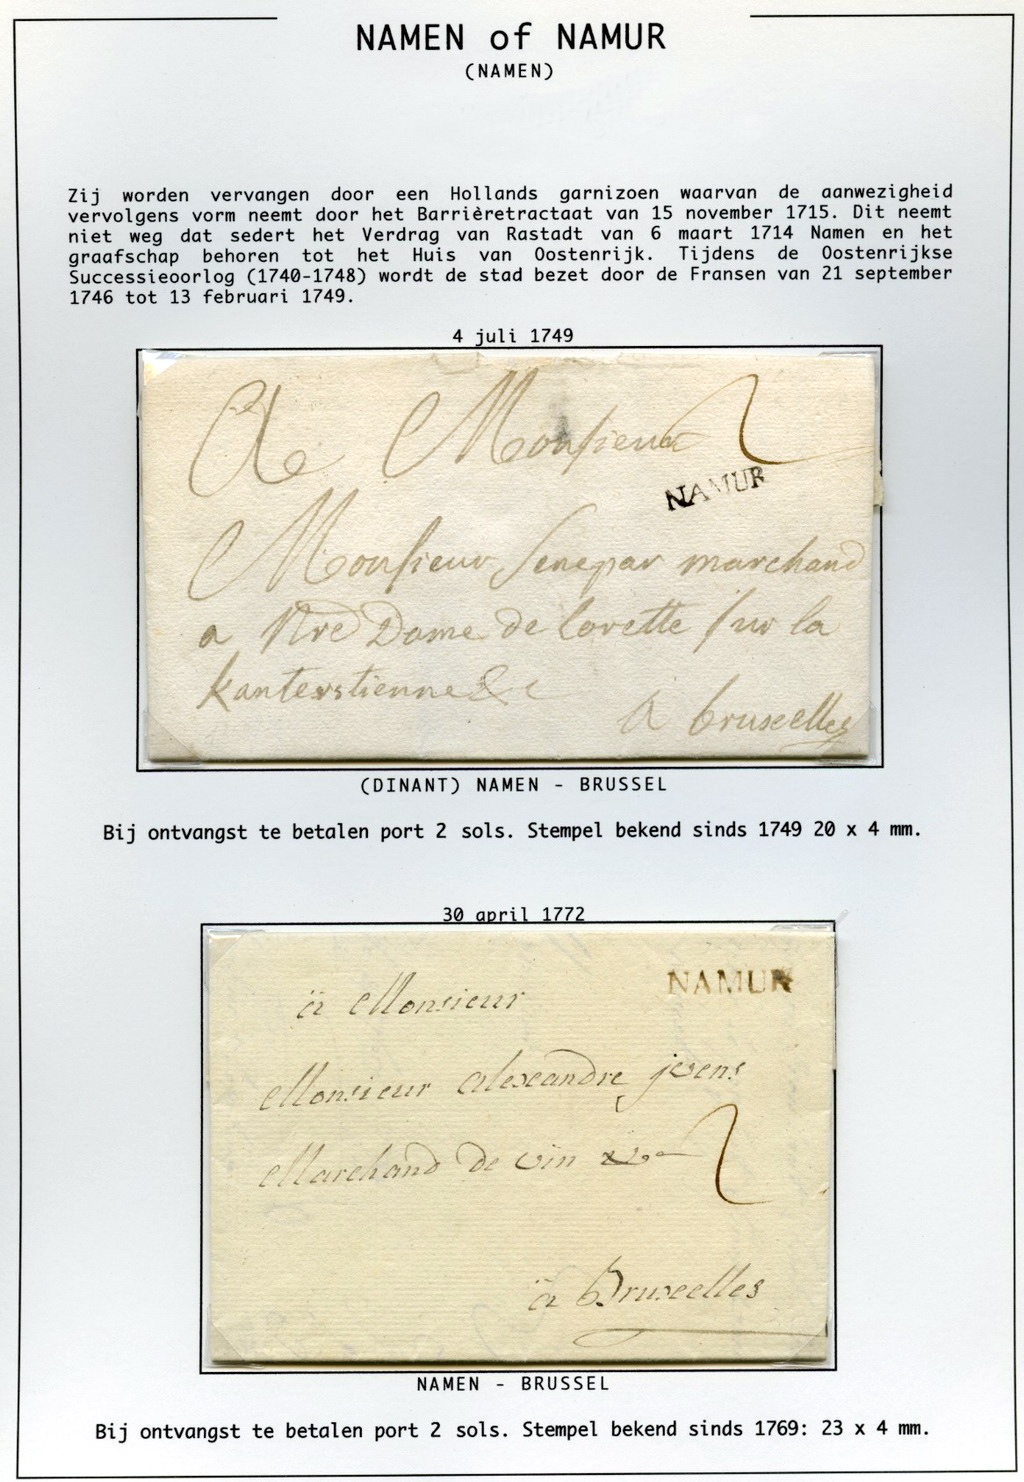 NAMEN of NAMUR
(NAMEN)
Zij worden vervangen door een Hollands garnizoen waarvan de aanwezigheid
vervolgens vorm neemt door het Barrièretractaat van 15 november 1715. Dit neemt
niet weg dat sedert het Verdrag van Rastadt van 6 maart 1714 Namen en het
graafschap behoren tot het Huis van Oostenrijk. Tijdens de Oostenrijkse
Successieoorlog (1740-1748) wordt de stad bezet door de Fransen van 21 september
1746 tot 13 februari 1749.
4 juli 1749
A Monsieur 2
NAMUR
Monsieur Senepar marchand
a Nre Dame de lorette sur la
kanterstienne &c
A bruxelles
(DINANT) NAMEN - BRUSSEL
Bij ontvangst te betalen port 2 sols. Stempel bekend sinds 1749 20 x 4 mm.
30 april 1772
NAMUR
ä Monsieur
Monsieur Alexandre
Marchand de vin 2
ä Bruxelles
NAMEN - BRUSSEL
Bij ontvangst te betalen port 2 sols. Stempel bekend sinds 1769: 23 x 4 mm.